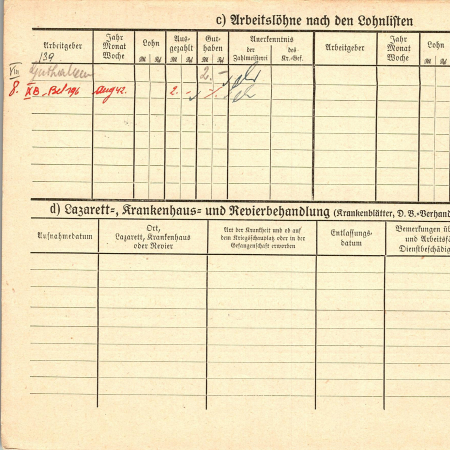 c) Arbeitslöhne nach den Lohnlisten
Arbeitgeber Jahr Monat Woche Lohn Ausgezahlt Guthaben Anerkenntnis Arbeitgeber Jahr Monat Woche Lohn
der Zahlmeisterei des Kr.-Gef.
139
VIII Guthaben 2.-
8. Aug 42. 2.-
d) Lazarett-, Krankenhaus- und Revierbehandlung (Krankenblätter, D. B.-Verhand
Aufnahmedatum Ort, Lazarett, Krankenhaus oder Revier Art der Krankheit und ob auf dem Kriegsschauplatz oder in der Gefangenschaft erworben Entlassungsdatum Bemerkungen und Arbeitsf Dienstbeschädig